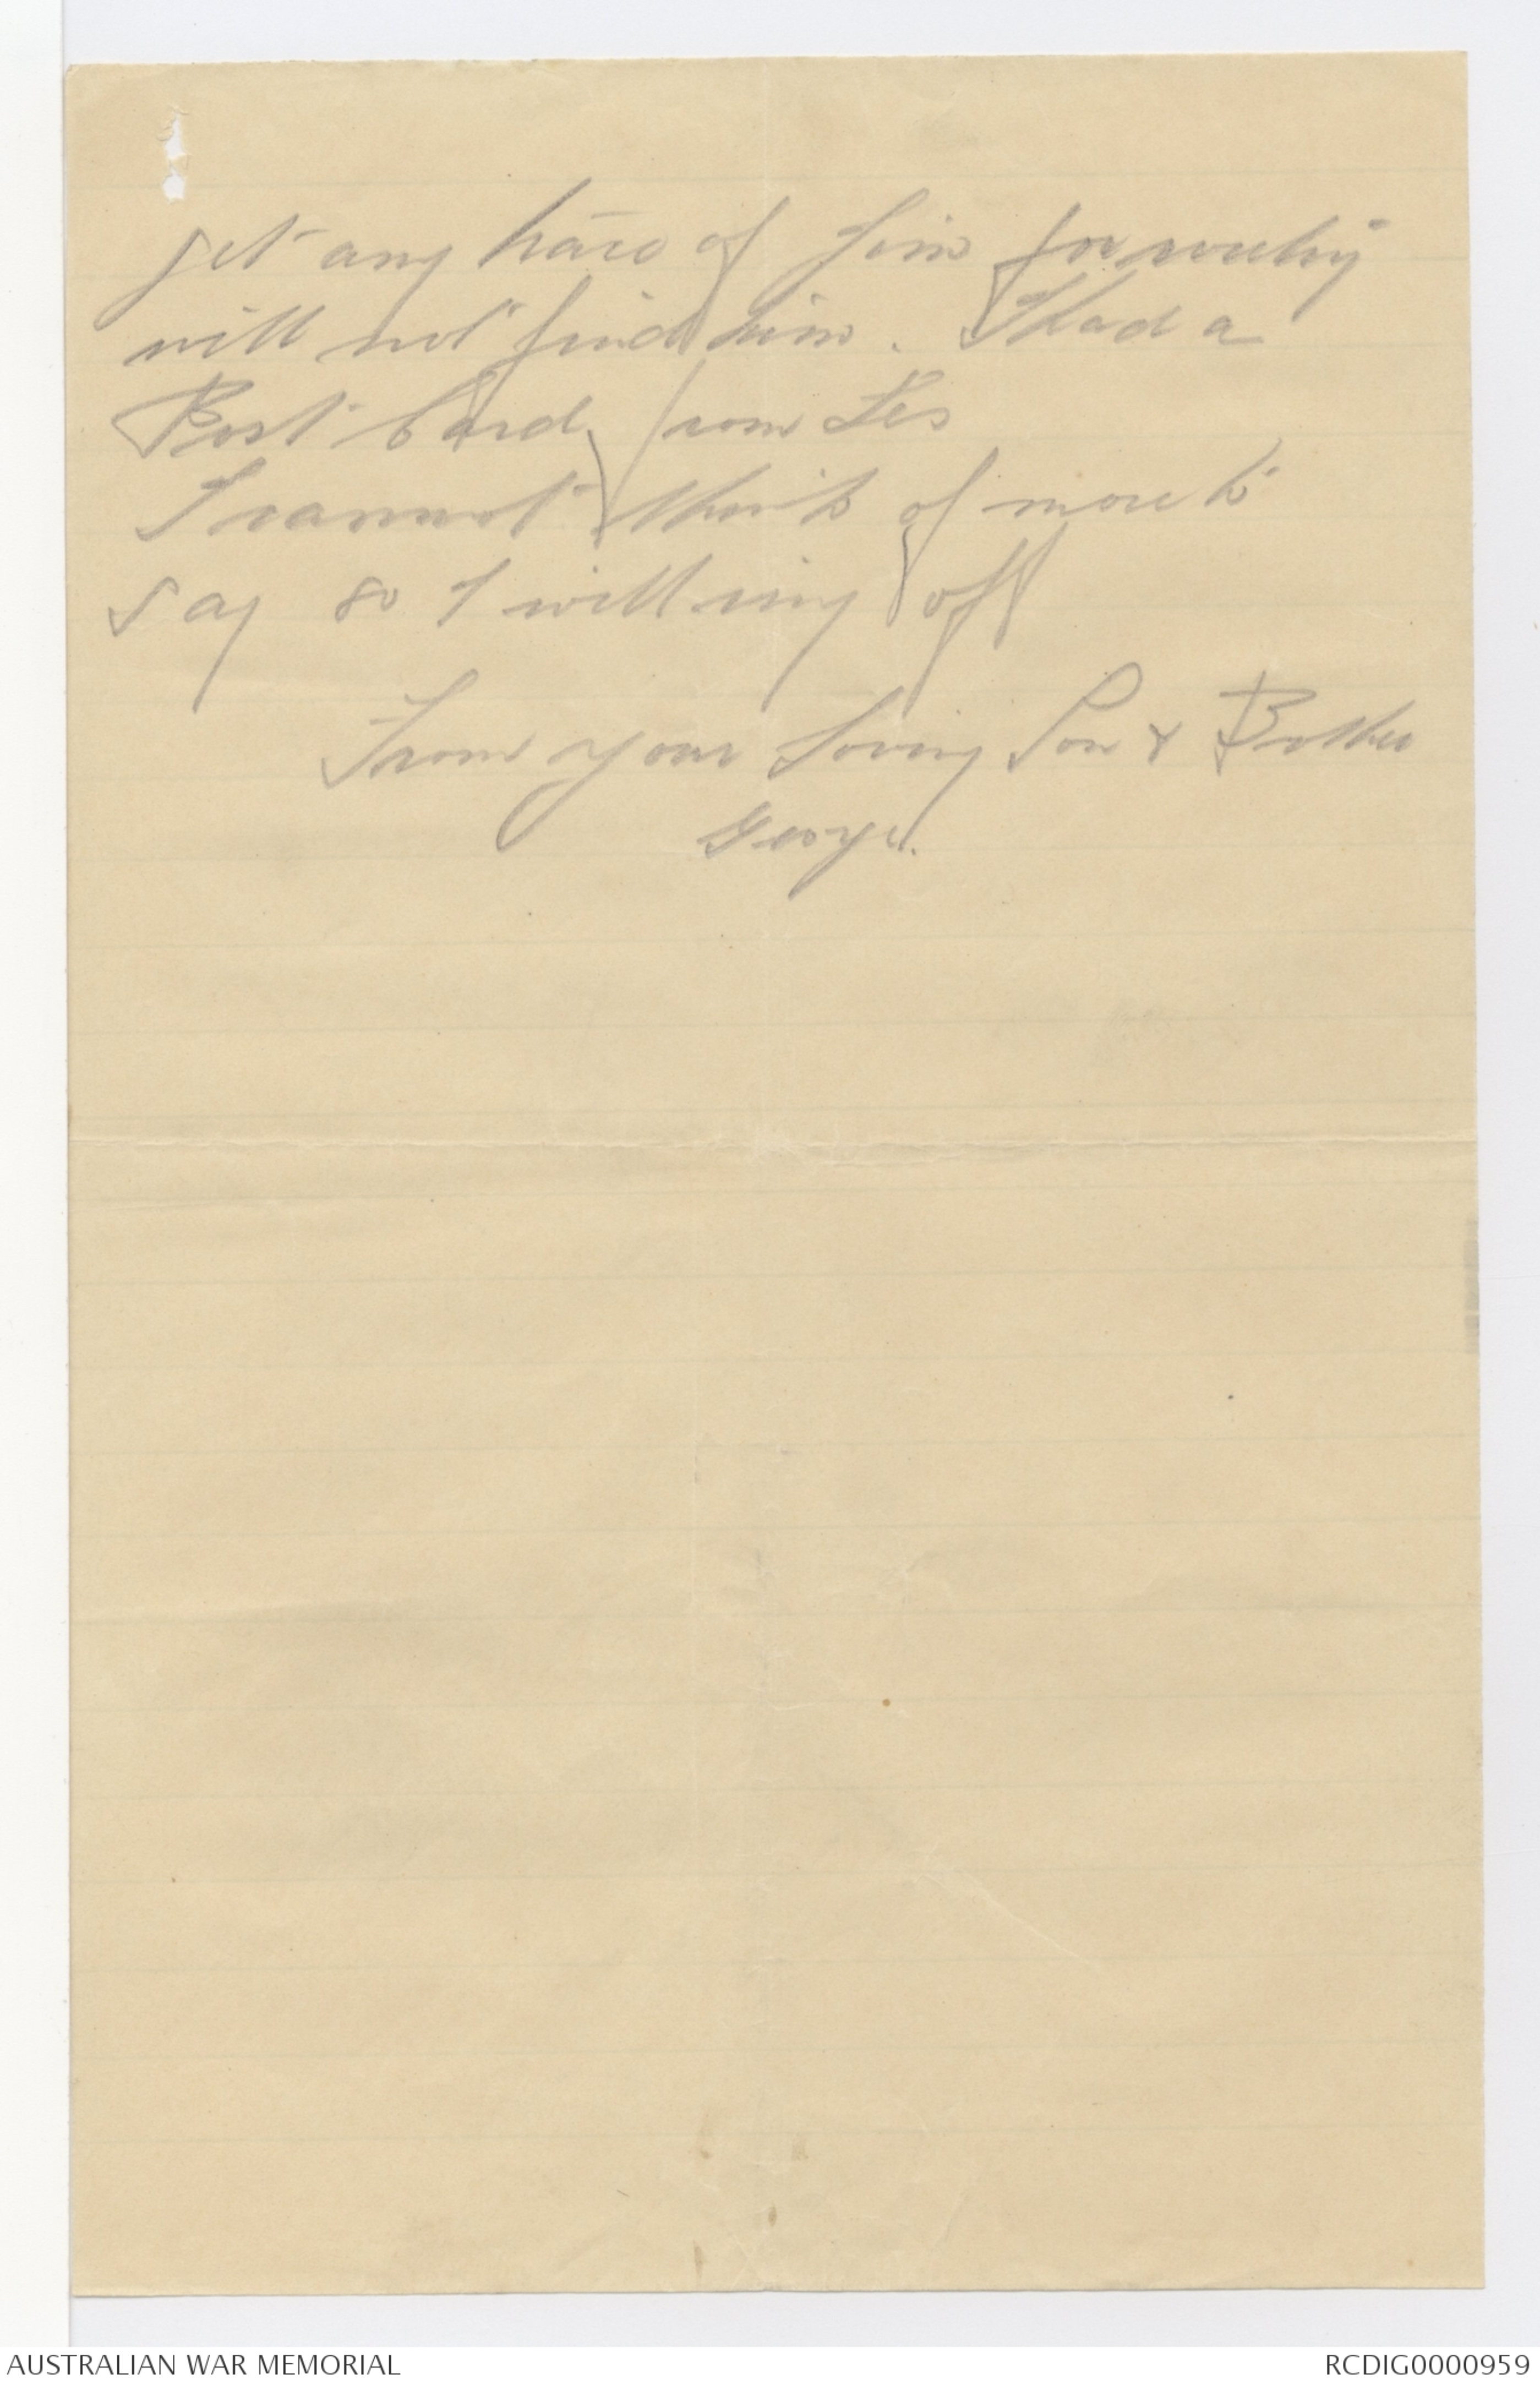 get any trace of him for worry
will not find him. I had a
Post Card from Les
I cannot think of more to
say so I will ring off
From your loving Son & Brother
George.
AUSTRALIAN WAR MEMORIAL
RCDIG0000959